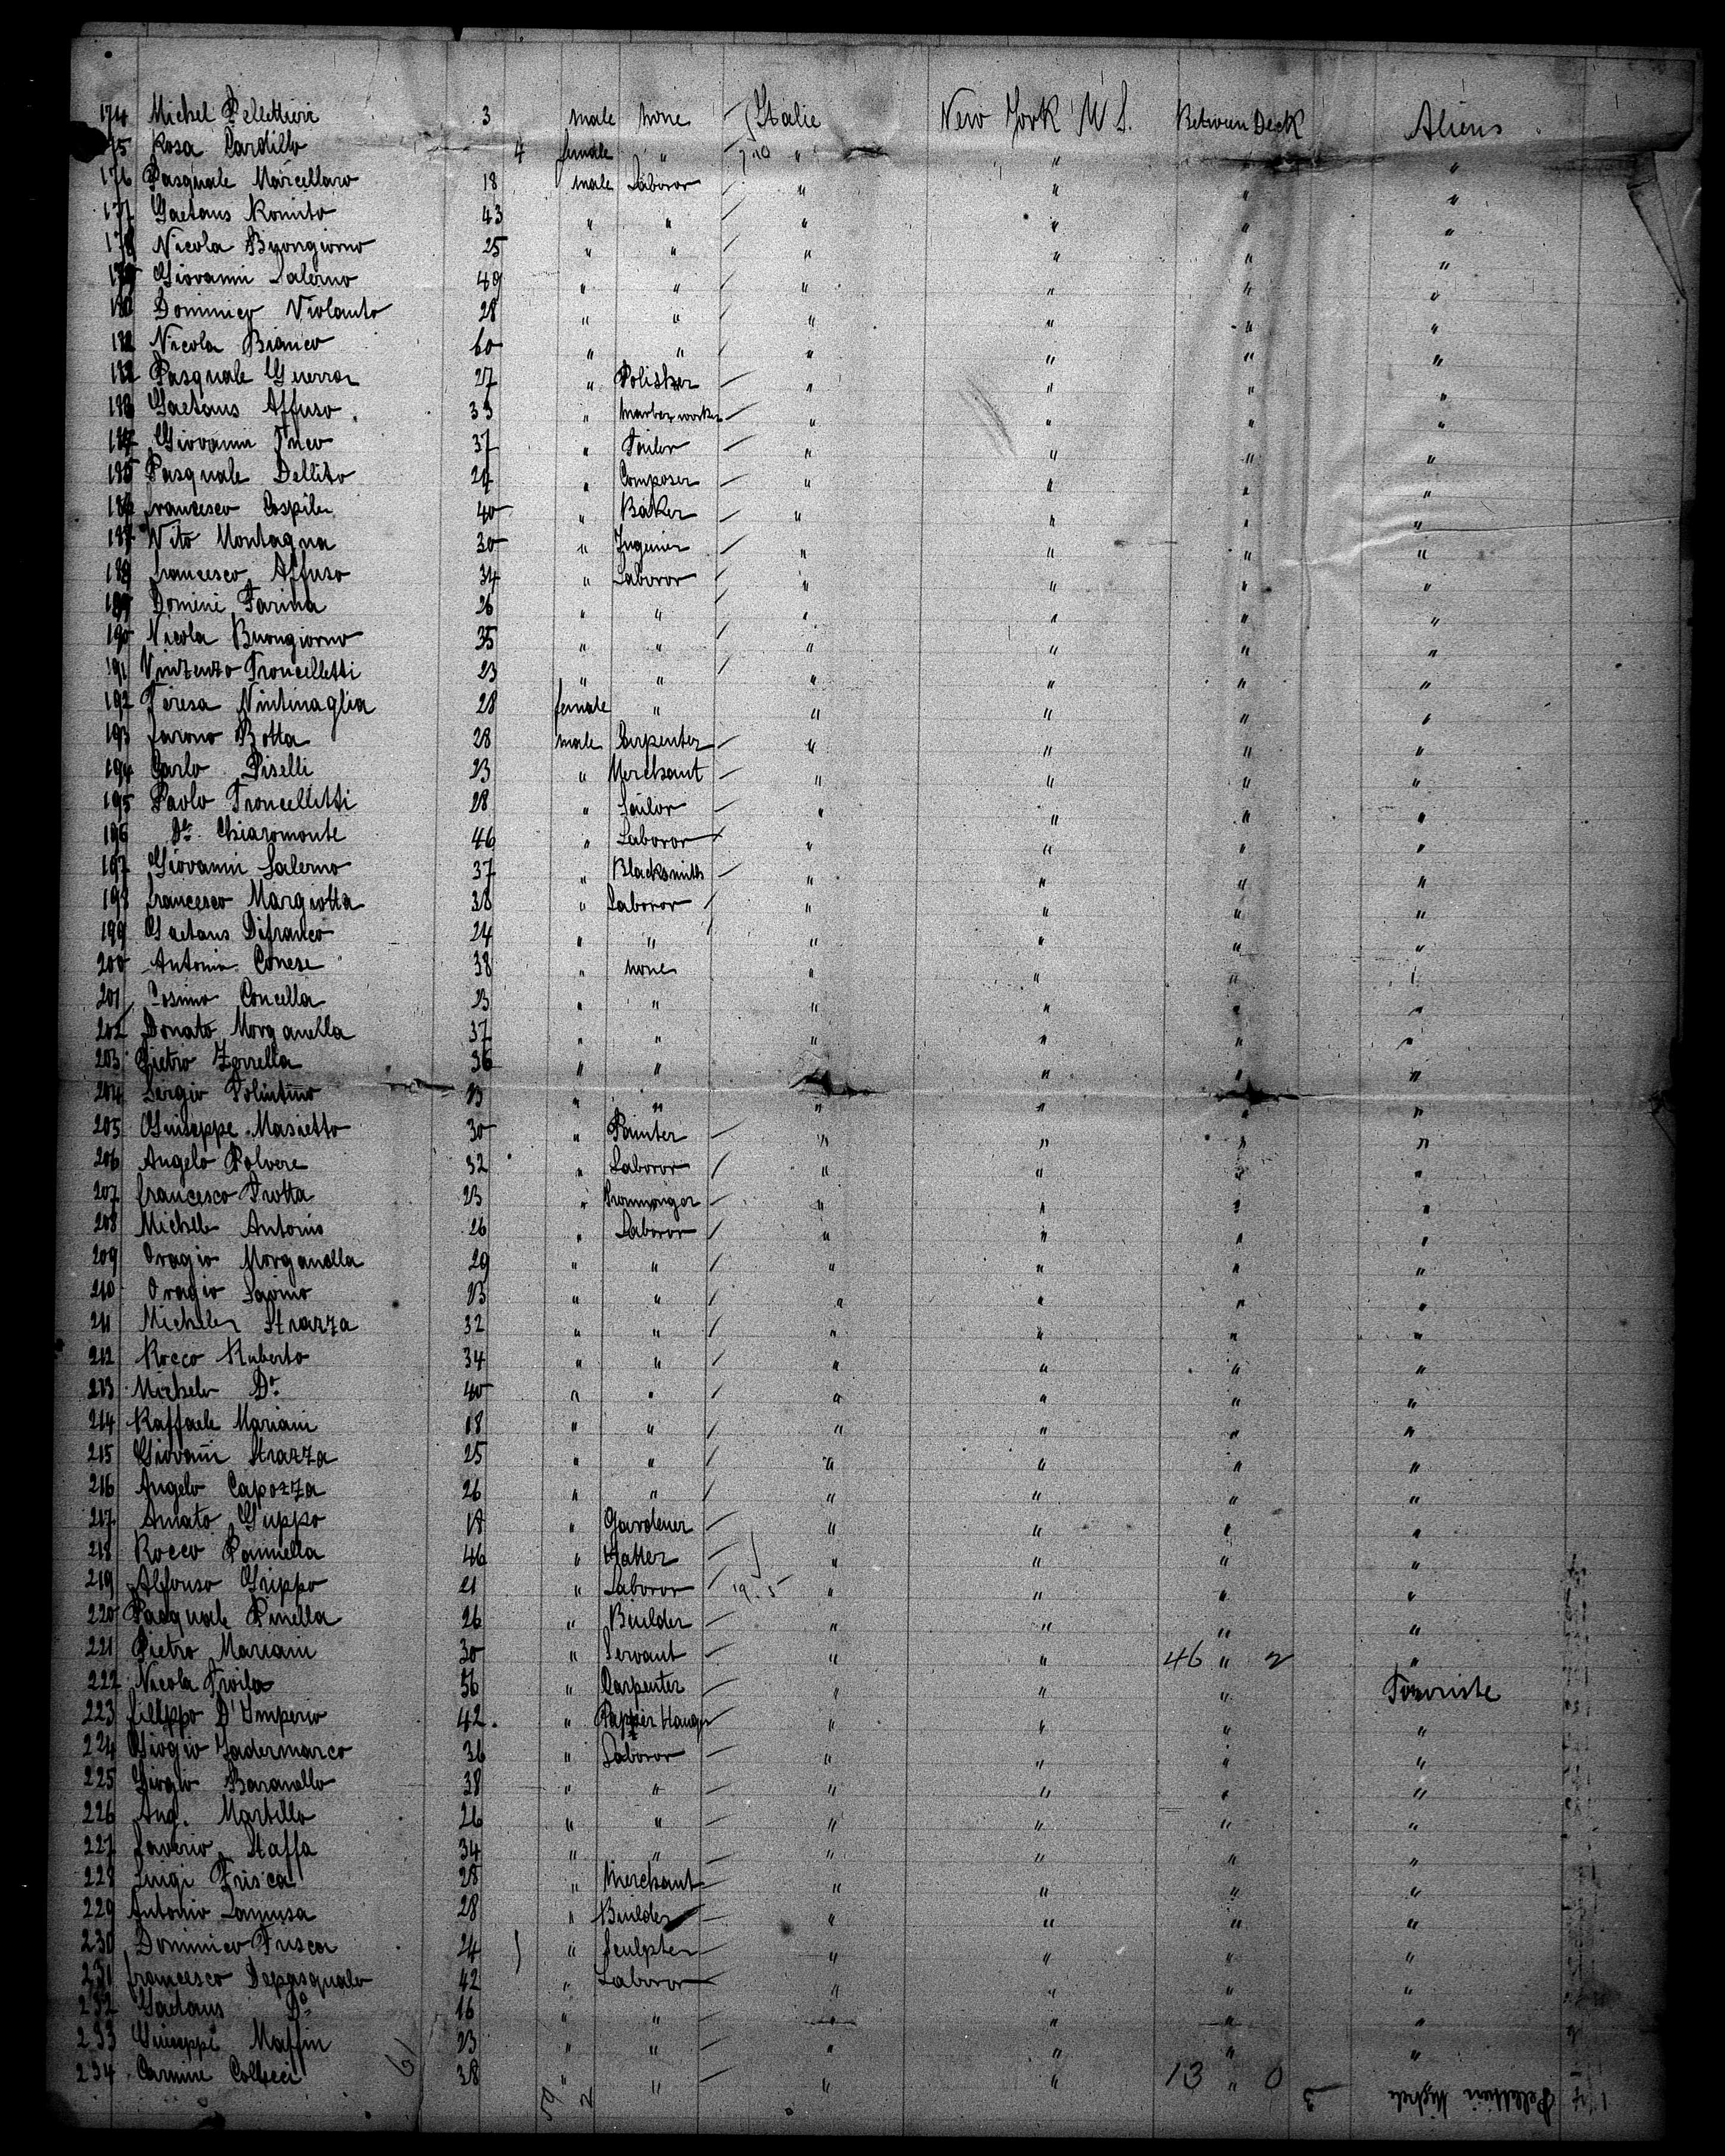 174 Michel Pelettieri 3 male none Italie New York U S. Between Deck Aliens
175 Rosa Cardillo 4 female " " " " "
176 Pasquale Marcellaro 18 male Laboror " " " "
177 Gaetano Romito 43 " " " " " "
178 Nicola Buongiorno 25 " " " " " "
179 Giovanni Salerno 49 " " " " " "
180 Dominico Violanto 28 " " " " " "
181 Nicola Bianco 60 " " " " " "
182 Pasquale Guerra 27 " Polisher " " " "
183 Gaetano Affuso 33 " Marber worker " " " "
184 Giovanni 37 " Tailor " " " "
185 Pasquale Dellito 24 " Composer " " " "
186 Francesco Cospito 40 " Baker " " " "
187 Vito Montagna 30 " Ingenier " " " "
188 Francesco Affuso 34 " Laboror " " " "
189 Domini Farina 26 " " " " " "
190 Nicola Buongiorno 35 " " " " " "
191 Vinzenzo Troncelletti 23 " " " " " "
192 Teresa Nintinaglia 28 female " " " " "
193 Botta 28 male Carpenter " " " "
194 Carlo Piselli 23 " Merchant " " " "
195 Paolo Troncelletti 28 " Sailor " " " "
196 Do. Chiaromonte 46 " Laboror " " " "
197 Giovanni Salerno 37 " Blacksmith " " " "
198 Francesco Margiotta 38 " Laboror " " " "
199 Gaetano Difranco 24 " " " " " "
200 Antonio Conese 38 " none " " " "
201 Cosimo Concella 23 " " " " " "
202 Donato Morganella 37 " " " " " "
203 Pietro Zorrella 36 " " " " " "
204 Sergio Polintino 23 " " " " " "
205 Guiseppe Masietto 30 " Painter " " " "
206 Angelo Polvere 32 " Laboror " " " "
207 Francesco Trotta 23 " Ironmonger " " " "
208 Michele Antonio 26 " Laboror " " " "
209 Oragio Morganella 29 " " " " " "
210 Oragio Savino 23 " " " " " "
211 Michele Strazza 32 " " " " " "
212 Rocco Ruberto 34 " " " " " "
213 Michele Do. 40 " " " " " "
214 Raffaele Mariani 18 " " " " " "
215 Giovanni Strazza 25 " " " " " "
216 Angelo Capozza 26 " " " " " "
217 Amato Guppo 18 " Gardener " " " "
218 Rocco Panniella 46 " Hatter " " " "
219 Alfonso Grippo 21 " Laboror " " " "
220 Pasquale Pinella 26 " Builder " " " "
221 Pietro Mariani 30 " Servant " " 46 " 2 "
222 Nicola Troila 56 " Carpenter " " " Touriste
223 Filippo D'Imperio 42 " Papper Hanger " " " "
224 Giogio Iadermarco 36 " Laboror " " " "
225 Giogio Baranello 38 " " " " " "
226 Ang. Martillo 26 " " " " " "
227 Saverio Staffa 34 " " " " " "
228 Luigi Frisca 28 " Merchant " " " "
229 Antonio Lamusa 28 " Builder " " " "
230 Dominico Frisca 24 " Sculpter " " " "
231 Francesco Depasquale 42 " Laboror " " " "
232 Gaetano Do 16 " " " " " "
233 Giuseppe Maffin 23 " " " " " "
234 Carmine Collucci 38 " " " " 13 " 0
61 59 2
174 Pelettieri Michele 3